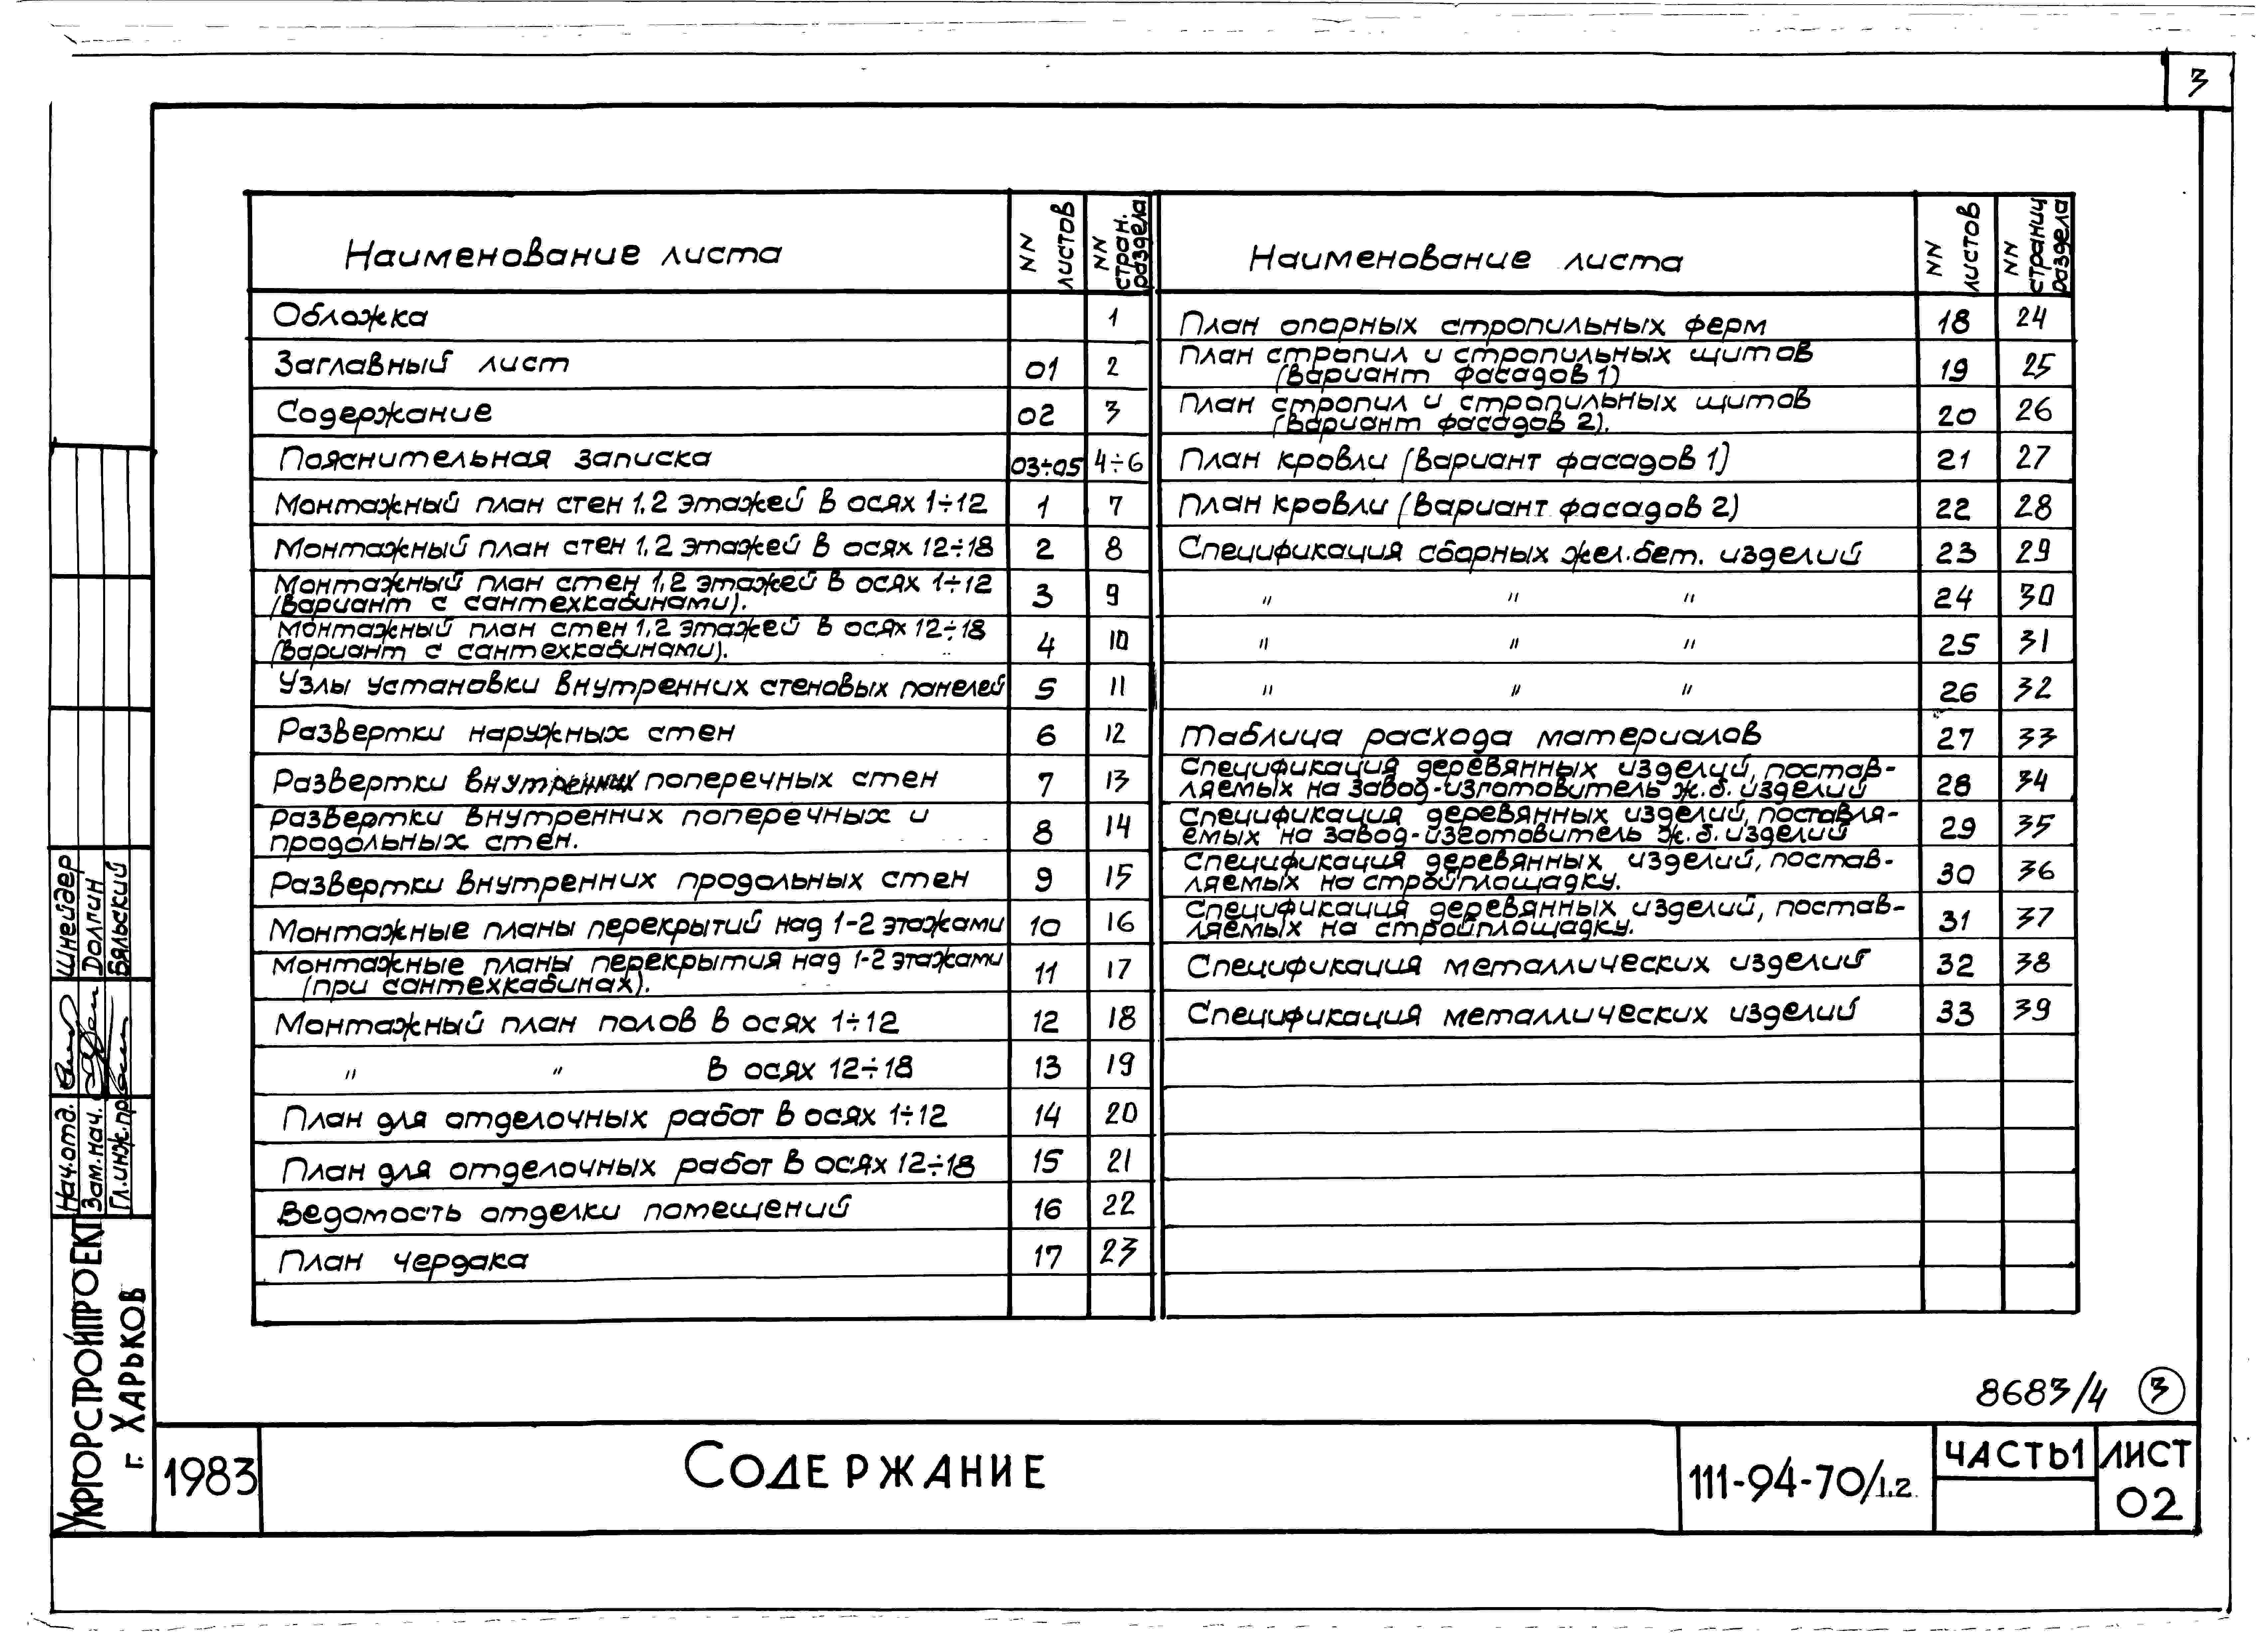 3
Наименование листа
NN листов
NN стран. раздела
Обложка 1
Заглавный лист 01 2
Содержание 02 3
Пояснительная записка 03÷05 4÷6
Монтажный план стен 1,2 этажей в осях 1÷12 1 7
Монтажный план стен 1,2 этажей в осях 12÷18 2 8
Монтажный план стен 1,2 этажей в осях 1÷12
(вариант с сантехкабинами). 3 9
Монтажный план стен 1,2 этажей в осях 12÷18
(вариант с сантехкабинами). 4 10
Узлы установки внутренних стеновых панелей 5 11
Развертки наружных стен 6 12
Развертки внутренних поперечных стен 7 13
Развертки внутренних поперечных и
продольных стен. 8 14
Развертки внутренних продольных стен 9 15
Монтажные планы перекрытий над 1-2 этажами 10 16
Монтажные планы перекрытия над 1-2 этажами
(при сантехкабинах). 11 17
Монтажный план полов в осях 1÷12 12 18
" " в осях 12÷18 13 19
План для отделочных работ в осях 1÷12 14 20
План для отделочных работ в осях 12÷18 15 21
Ведомость отделки помещений 16 22
План чердака 17 23
Наименование листа
NN листов
NN страниц раздела
План опорных стропильных ферм 18 24
План стропил и стропильных щитов
(вариант фасадов 1) 19 25
План стропил и стропильных щитов
(вариант фасадов 2). 20 26
План кровли (вариант фасадов 1) 21 27
План кровли (вариант фасадов 2) 22 28
Спецификация сборных жел.бет. изделий 23 29
" " " 24 30
" " " 25 31
" " " 26 32
Таблица расхода материалов 27 33
Спецификация деревянных изделий, постав-
ляемых на завод-изготовитель ж.б. изделий 28 34
Спецификация деревянных изделий, поставля-
емых на завод-изготовитель ж.б. изделий 29 35
Спецификация деревянных изделий, постав-
ляемых на стройплощадку. 30 36
Спецификация деревянных изделий, постав-
ляемых на стройплощадку. 31 37
Спецификация металлических изделий 32 38
Спецификация металлических изделий 33 39
Нач.отд. Шнейдер
Зам.нач. Долгин
Гл.инж.пр. Бяльский
Укргорстройпроект
г. Харьков
8683/4 3
1983
Содержание
111-94-70/1.2
Часть 1
Лист
02